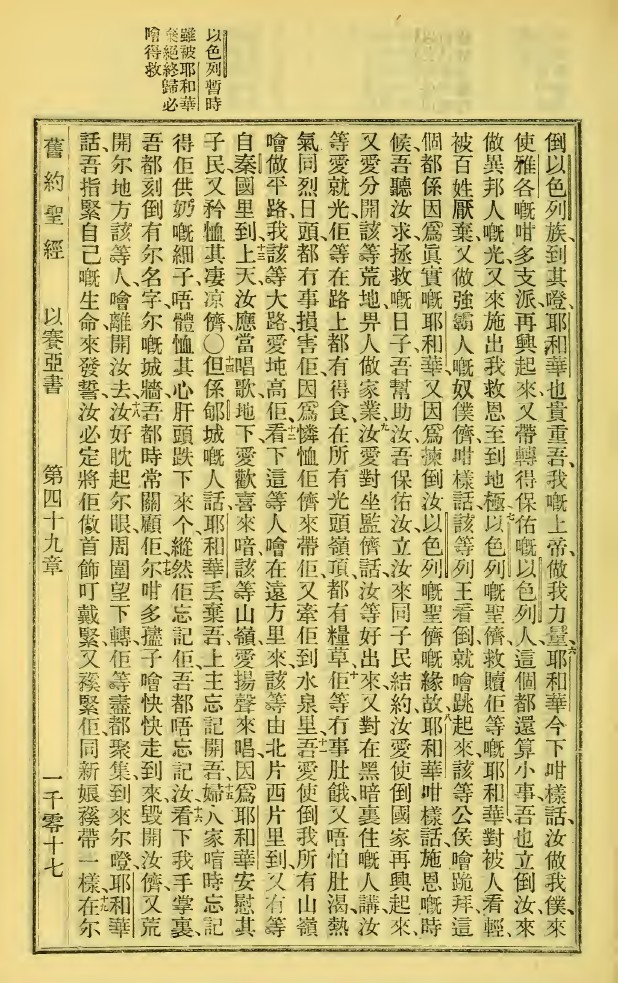 以色列暫時
雖被耶和華
棄絕終歸必
噲得救
倒以色列族、到其噔、耶和華也貴重吾、我嘅上帝、做我力量、六耶和華今下咁樣話、汝做我僕、來
使雅各嘅咁多支派再興起來、又帶轉得保佑嘅以色列人、這個都還算小事、吾也立倒汝來
做異邦人嘅光、又來施出我救恩至到地極、七以色列嘅聖儕救贖佢等嘅耶和華、對被人看輕、
被百姓厭棄、又做強霸人嘅奴僕儕、咁樣話、該等列王看倒就噲跳起來、該等公侯噲跪拜、這
個都係因爲眞實嘅耶和華、又因爲揀倒汝以色列嘅聖儕嘅緣故、八耶和華咁樣話、施恩嘅時
候、吾聽汝求、拯救嘅日子、吾幫助汝、吾保佑汝、立汝來同子民結約、汝愛使倒國家再興起來、
又愛分開該等荒地、畀人做家業、九汝愛對坐監儕話、汝等好出來、又對在黑暗裏住嘅人講、汝
等愛就光、佢等在路上都有得食、在所有光頭嶺頂都有糧草、十佢等冇事肚餓、又唔怕肚渴、熱
氣同烈日頭、都冇事損害佢、因爲憐恤佢儕來帶佢、又牽佢到水泉里、十一吾愛使倒我所有山嶺
噲做平路、我該等大路愛坉高佢、十二看下這等人噲在遠方里來、該等由北片西片里到、又有等
自秦國里到、十三上天、汝應當唱歌、地下、愛歡喜來喑、該等山嶺、愛揚聲來唱、因爲耶和華安慰其
子民、又矜恤其凄凉儕、〇十四但係郇城嘅人話、耶和華丢棄吾、上主忘記開吾、十五婦人家㗂時忘記
得佢供奶嘅細子、唔體恤其心肝頭跌下來个、縱然佢忘記佢、吾都唔忘記汝、十六看下我手掌裏、
吾都刻倒有尔名字、尔嘅城牆、吾都時常關顧佢、十七尔咁多孻子噲快快走到來、毀開汝儕、又荒
開尔地方該等人、噲離開汝去、十八汝好眈起尔眼、周圍望下轉、佢等盡都聚集到來尔噔、耶和華
話、吾指緊自己嘅生命來發誓、汝必定將佢做首飾叮戴緊、又緊佢、同新娘帶一樣、十九在尔
舊約聖經　以賽亞書　第四十九章　一千零十七